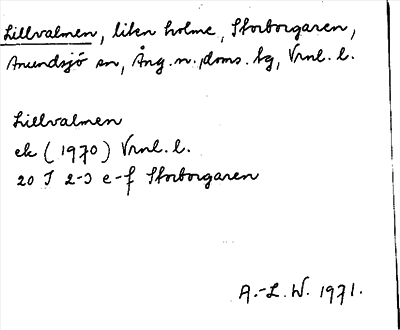 Lillvalmen, liten holme, Storborgaren,
Anundsjö sn, Ång. n. doms. tg, Vrnl. l.
Lillvalmen
ek (1970) Vrnl. l.
20 J 2-3 e-f Storborgaren
A.-L. W. 1971.